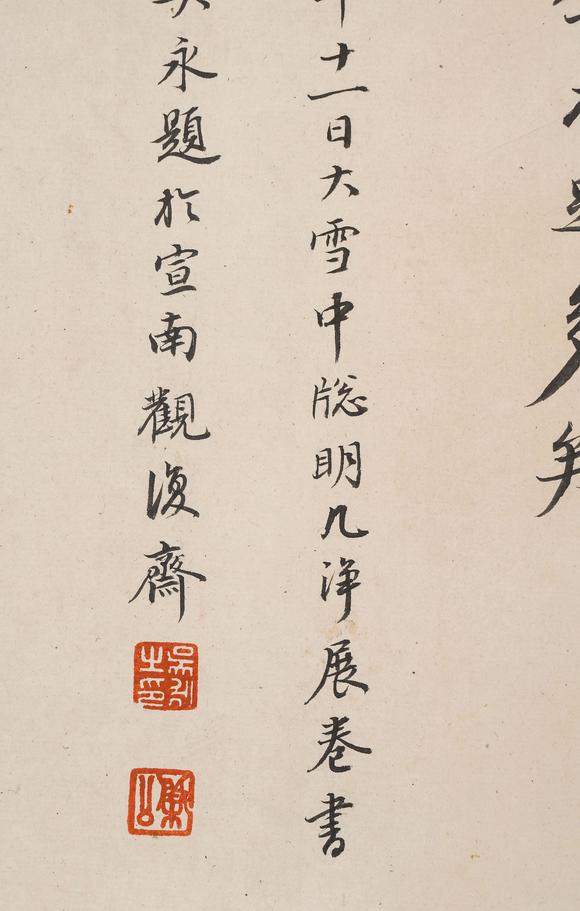 十一日大雪中牎明几淨展卷書
吳永題於宣南觀復齋